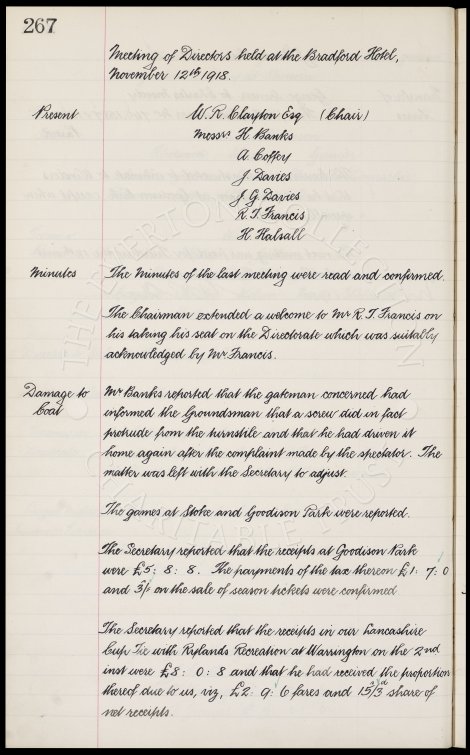 267
Meeting of Directors held at the Bradford Hotel,
November 12th 1918.
Present W. R. Clayton Esq (Chair)
Messrs H. Banks
A. Coffey
J. Davies
J. G. Davies
R. T. Francis
H. Halsall
Minutes The Minutes of the last meeting were read and confirmed.
The Chairman extended a welcome to Mr R. T Francis on
his taking his seat on the Directorate which was suitably
acknowledged by Mr Francis.
Damage to Mr Banks reported that the gateman concerned had
Coat informed the Groundsman that a screw did in fact
protrude from the turnstile and that he had driven it
home again after the complaint made by the spectator. The
matter was left with the Secretary to adjust.
The games at Stoke and Goodison Park were reported.
The Secretary reported that the receipts at Goodison Park
were £5: 8: 8. The payments of the tax thereon £1: 7: 0
and 3/1 on the sale of season tickets were confirmed
The Secretary reported that the receipts in our Lancashire
Cup Tie with Rylands Recreation at Warrington on the 2nd
inst were £8: 0: 8 and that he had received the proportion
thereof due to us, viz, £2: 9: 6 fares and 15/3 share of
net receipts.
THE EVERTON COLLECTION
CHARITABLE TRUST